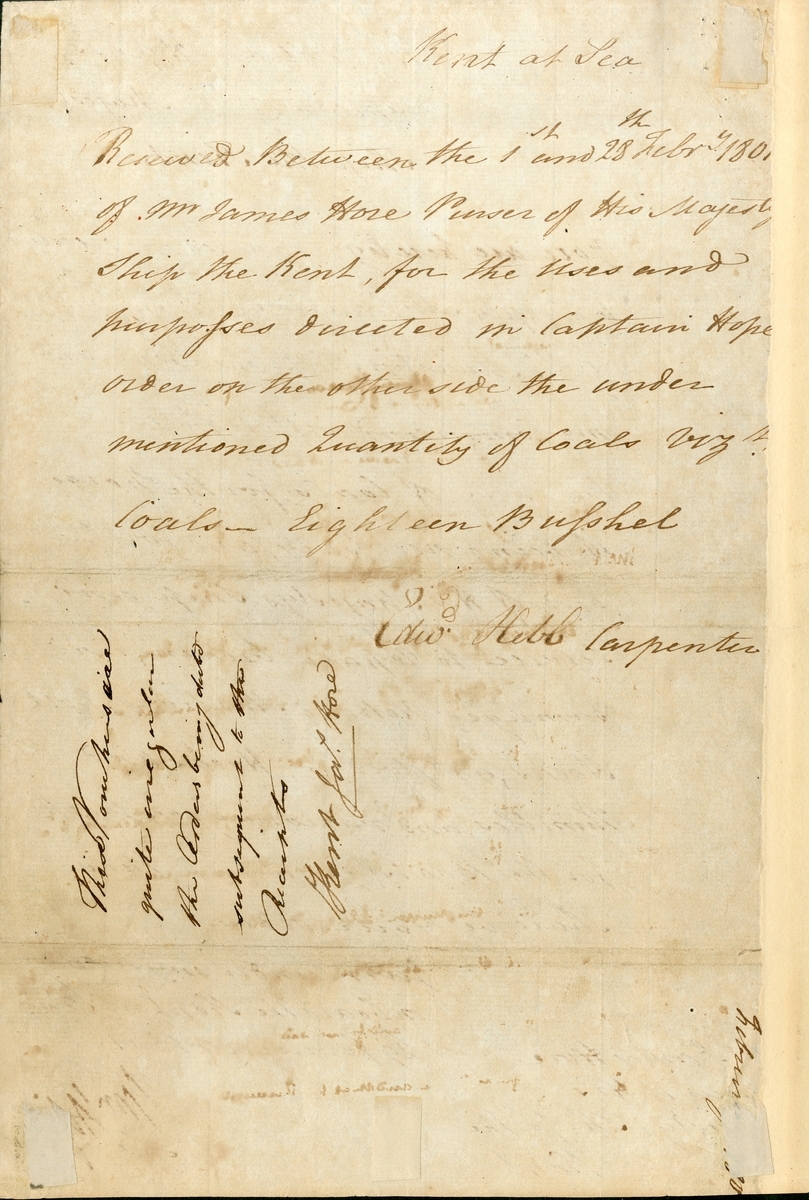 Kent at Sea
Received Between the 1st and 28th Febry 180
of Mr James Hore Purser of His Majesty
Ship the Kent, for the uses and
purposses directed in Captain Hope
order on the other side the under
mentioned Quantity of Coals vizt
Coals — Eighteen Bushel
Edwd Hebb Carpenter
These Vouchers are
quite irregular
the Orders being dated
subsequent to the
Receipts
Kent Jas. Hore